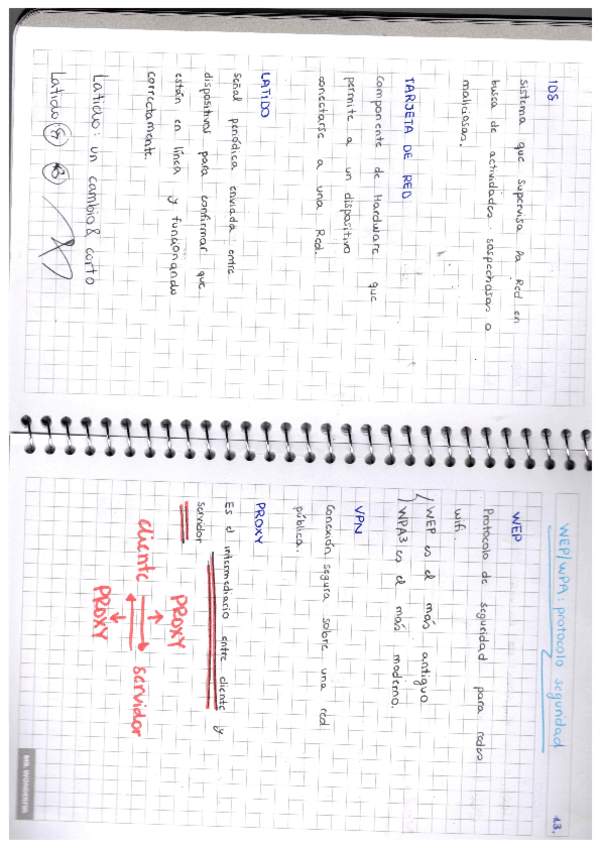 IDS
Sistema que supervisa la Red en
busca de actividades sospechosas o
maliciosas.
TARJETA DE RED
Componente de Hardware que
permite a un dispositivo
conectarse a una Red.
LATIDO
Señal periódica enviada entre
dispositivos para confirmar que
están en línea y funcionando
correctamente.
Latido: un cambio& corto
Latido
WEP/WPA: protocolo seguridad
13.
WEP
Protocolo de seguridad para redes
wifi.
/ WEP es el más antiguo
/ WPA3 es el más moderno.
VPN
Conexión segura sobre una red
pública.
PROXY
Es el intermediario entre cliente y
servidor
PROXY
cliente servidor
PROXY
MR. WONDERFUL